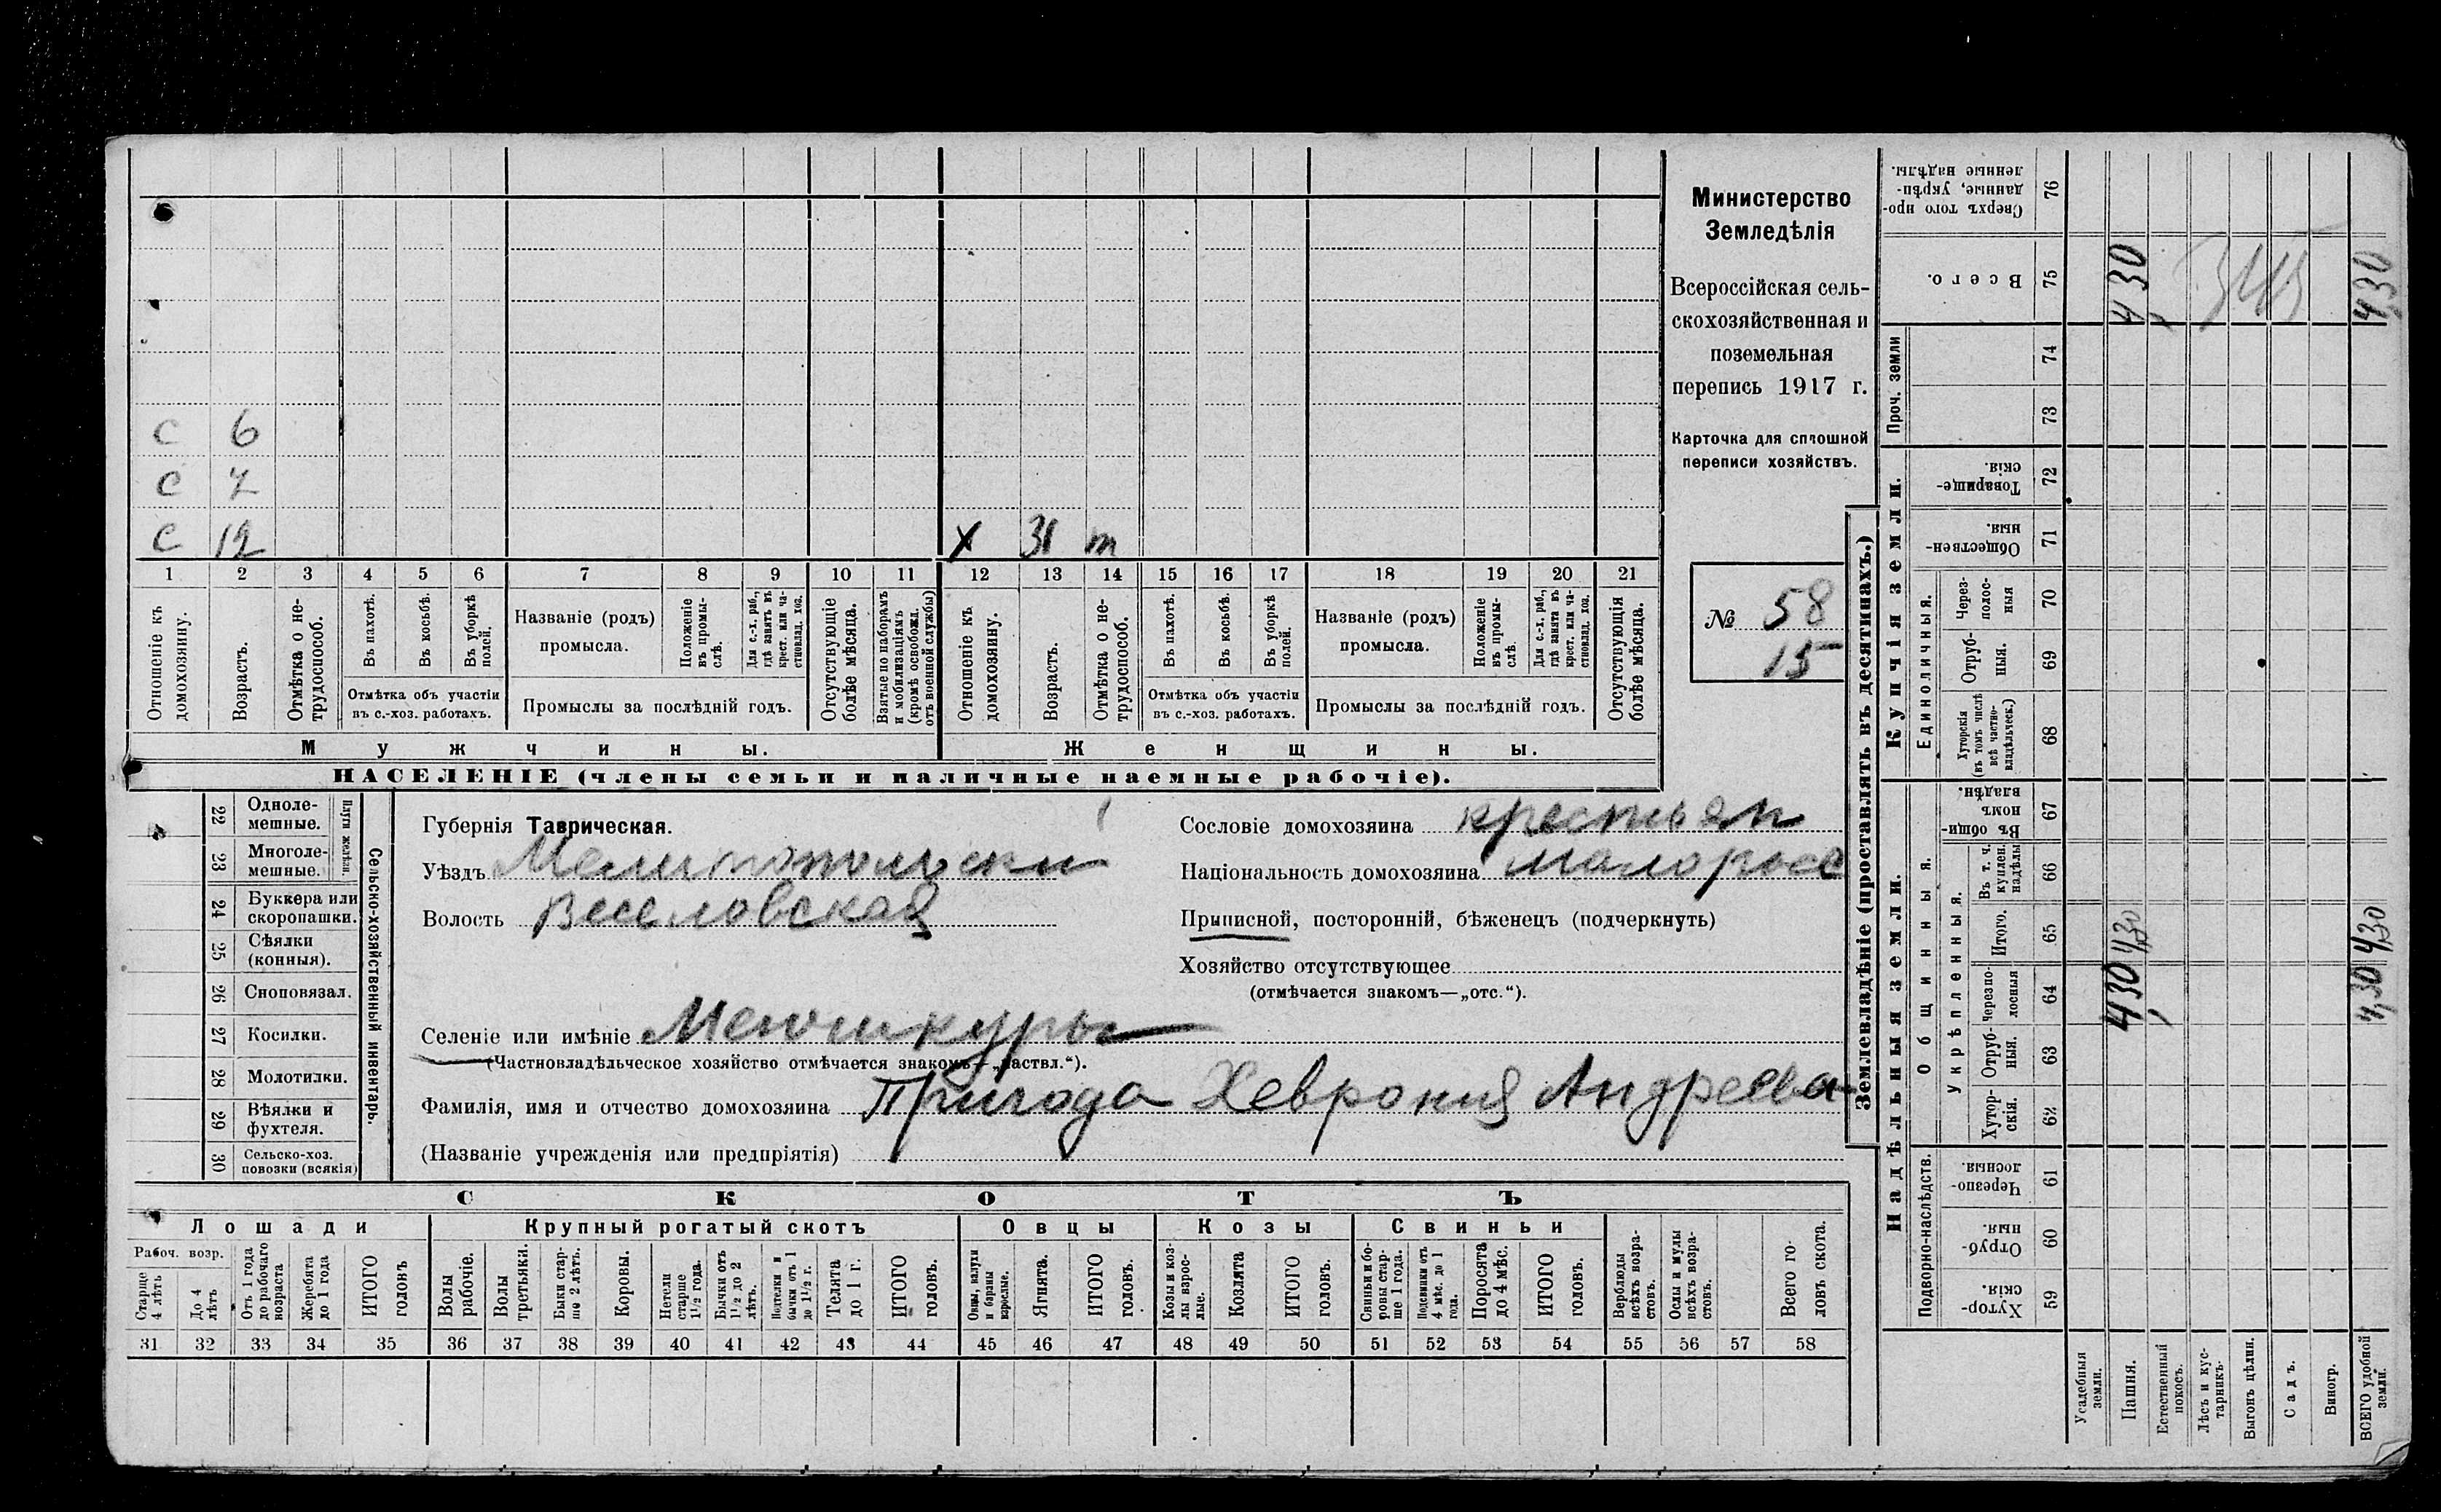 Министерство
Земледѣлія
Всероссійская сель-
скохозяйственная и
поземельная
перепись 1917 г.
Карточка для сплошной
переписи хозяйствъ.
№ 58
15
с 6
с 7
с 12
х 31 т
1 2 3 4 5 6 7 8 9 10 11 12 13 14 15 16 17 18 19 20 21
Отношеніе къ домохозяину.
Возрастъ.
Отмѣтка о не-трудоспособ.
Въ пахотѣ.
Въ косьбѣ.
Въ уборкѣ полей.
Отмѣтка объ участіи въ с.-хоз. работахъ.
Названіе (родъ) промысла.
Положеніе въ промы-слѣ.
Для с.-х. раб., гдѣ занятъ въ крест. или ча-стновлад. хоз.
Промыслы за послѣдній годъ.
Отсутствующіе болѣе мѣсяца.
Взятые по наборамъ и мобилизаціямъ (кромѣ освобожд. отъ военной службы)
Отношеніе къ домохозяину.
Возрастъ.
Отмѣтка о не-трудоспособ.
Въ пахотѣ.
Въ косьбѣ.
Въ уборкѣ полей.
Отмѣтка объ участіи въ с.-хоз. работахъ.
Названіе (родъ) промысла.
Положеніе въ промы-слѣ.
Для с.-х. раб., гдѣ занята въ крест. или ча-стновлад. хоз.
Промыслы за послѣдній годъ.
Отсутствующія болѣе мѣсяца.
Мужчины.
Женщины.
НАСЕЛЕНІЕ (члены семьи и наличные наемные рабочіе).
22 Одноле-мешные.
23 Многоле-мешные.
Плуги желѣзн.
24 Буккера или скоропашки.
25 Сѣялки (конныя).
26 Сноповязал.
27 Косилки.
28 Молотилки.
29 Вѣялки и фухтеля.
30 Сельско-хоз. повозки (всякія)
Сельско-хозяйственный инвентарь.
Губернія Таврическая.
Уѣздъ Мелитопольски
Волость Веселовская
Сословіе домохозяина крестьян
Національность домохозяина малоросс
Приписной, посторонній, бѣженецъ (подчеркнуть)
Хозяйство отсутствующее
(отмѣчается знакомъ—„отс.“).
Селеніе или имѣніе Меншикуры
(Частновладѣльческое хозяйство отмѣчается знакомъ—„частвл.“).
Фамилія, имя и отчество домохозяина Пригода Хеврония Андреева
(Названіе учрежденія или предпріятія)
СКОТЪ
Лошади
Крупный рогатый скотъ
Овцы
Козы
Свиньи
Рабоч. возр.
Старше 4 лѣтъ
До 4 лѣтъ
Отъ 1 года до рабочаго возраста
Жеребята до 1 года
ИТОГО головъ
Волы рабочіе.
Волы третьяки.
Быки стар-ше 2 лѣтъ.
Коровы.
Нетели старше 1 1/2 года.
Бычки отъ 1 1/2 до 2 лѣтъ.
Подтелки и бычки отъ 1 до 1 1/2 г.
Телята до 1 г.
ИТОГО головъ.
Овцы, валухи и бараны взрослые.
Ягнята.
ИТОГО головъ.
Козы и коз-лы взрос-лые.
Козлята
ИТОГО головъ.
Свиньи и бо-ровы стар-ше 1 года.
Подсвинки отъ 4 мѣс. до 1 года.
Поросята до 4 мѣс.
ИТОГО головъ.
Верблюды всѣхъ возра-стовъ.
Ослы и мулы всѣхъ возра-стовъ.
Всего го-ловъ скота.
31 32 33 34 35 36 37 38 39 40 41 42 43 44 45 46 47 48 49 50 51 52 53 54 55 56 57 58
Землевладѣніе (проставлять въ десятинахъ.)
Надѣльныя земли.
Купчія земли.
Проч. земли
Сверхъ того про-данные, укрѣп-ленные надѣлы. 76
Всего. 75
74
73
Товарище-скія. 72
Обществен-ныя. 71
Единоличныя.
Через-полос-ныя 70
Отруб-ныя. 69
Хуторскія (въ томъ числѣ всѣ частно-владѣльческ.) 68
Общинныя.
Въ общин-номъ владѣн. 67
Укрѣпленныя.
Въ т. ч. куплен. надѣлы 66
Итого. 65
Черезпо-лосныя 64
Отруб-ныя. 63
Хутор-скія. 62
Подворно-наслѣдств.
Черезпо-лосныя. 61
Отруб-ныя. 60
Хутор-скія. 59
Усадебныя земли.
Пашня.
Естественный покосъ.
Лѣсъ и кус-тарникъ.
Выгонъ цѣлин.
Садъ.
Виногр.
ВСЕГО удобной земли.
4,30 4,30 4,30
4,30 4,30 4,30